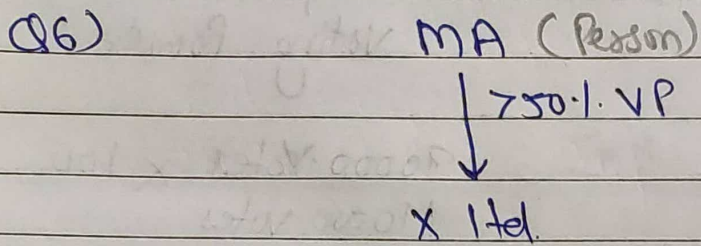 Q6) MA (Person)
>50%. VP
X ltd.